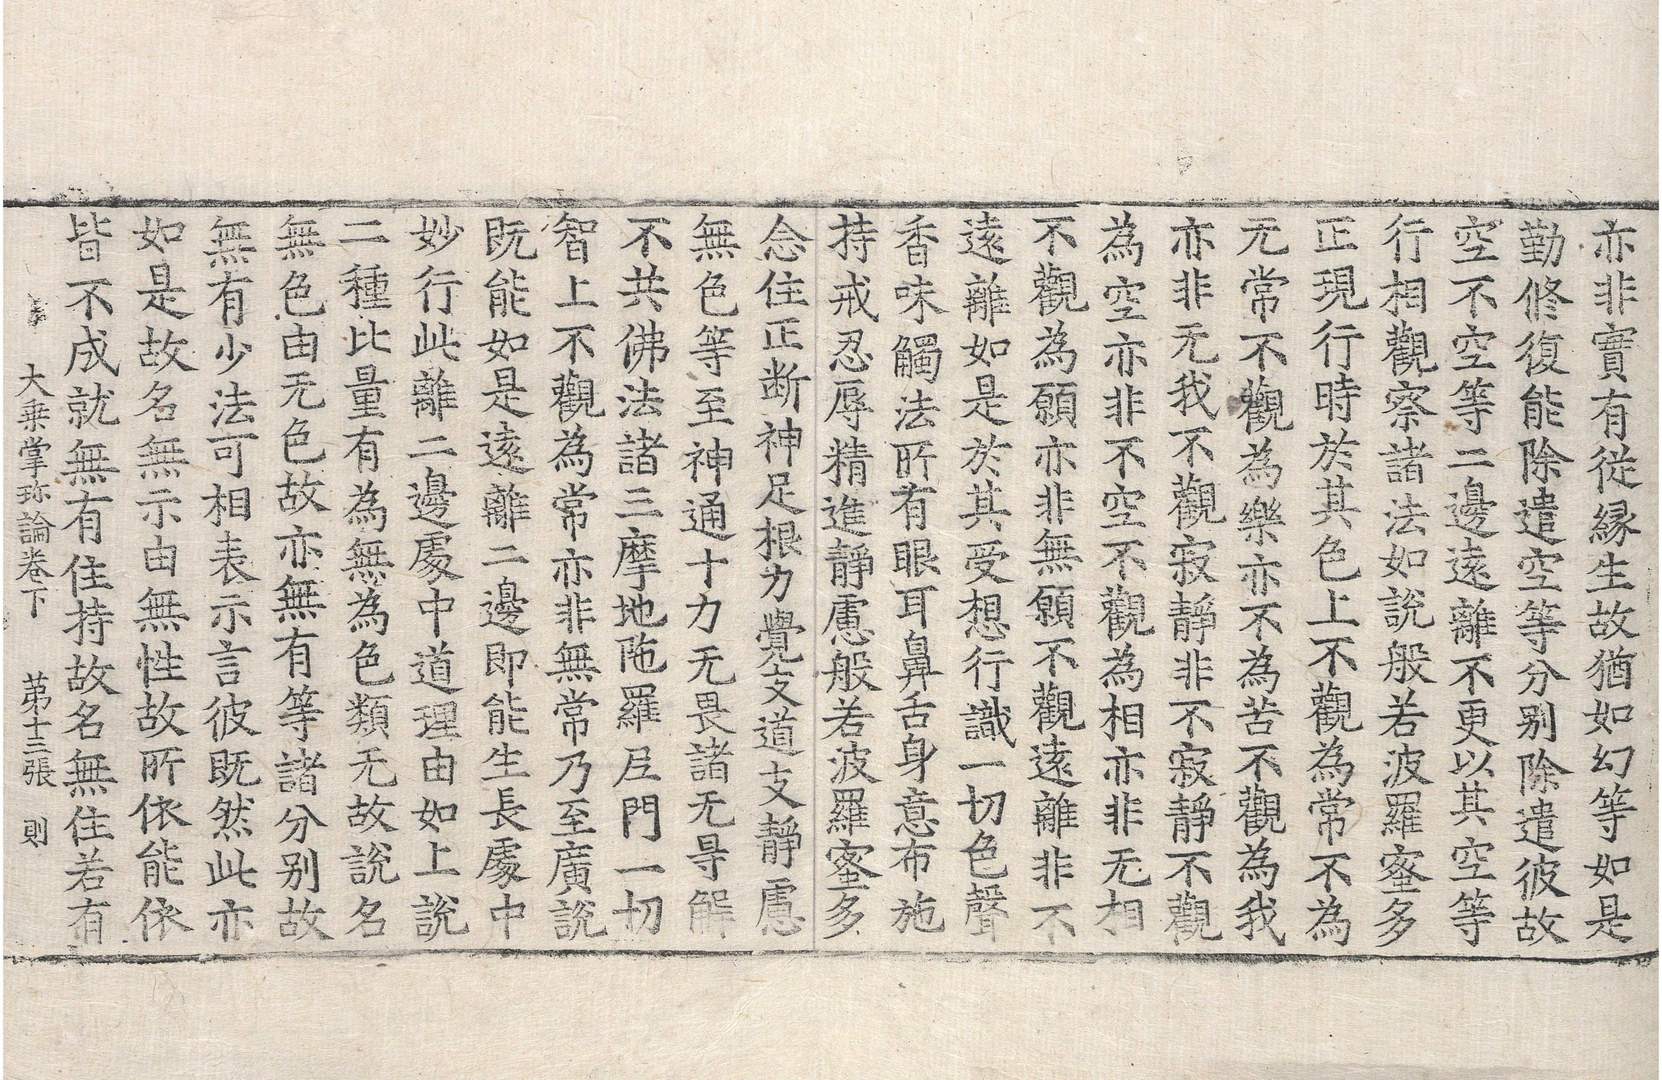 亦非實有從縁生故猶如幻等如是
勤修復能除遣空等分别除遣彼故
空不空等二邊遠離不更以其空等
行相觀察諸法如說般若波羅蜜多
正現行時於其色上不觀為常不為
无常不觀為樂亦不為苦不觀為我
亦非无我不觀寂靜非不寂靜不觀
為空亦非不空不觀為相亦非无相
不觀為願亦非無願不觀遠離非不
遠離如是於其受想行識一切色聲
香味觸法所有眼耳鼻舌身意布施
持戒忍辱精進靜慮般若波羅蜜多
念住正断神足根力覺支道支靜慮
無色等至神通十力无畏諸无㝵解
不共佛法諸三摩地陁羅尼門一切
智上不觀為常亦非無常乃至廣說
既能如是遠離二邊即能生長處中
妙行此離二邊處中道理由如上說
二種比量有為無為色類无故說名
無色由无色故亦無有等諸分别故
無有少法可相表示言彼既然此亦
如是故名無示由無性故所依能依
皆不成就無有住持故名無住若有
大乗掌珎論卷下 苐十二張 則